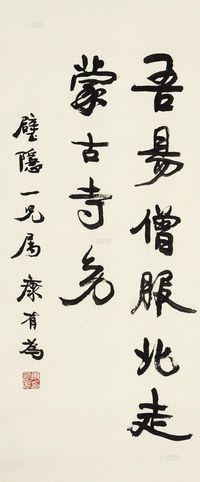 吾易僧服北走
蒙古寺免
璧隱一兄属 康有為